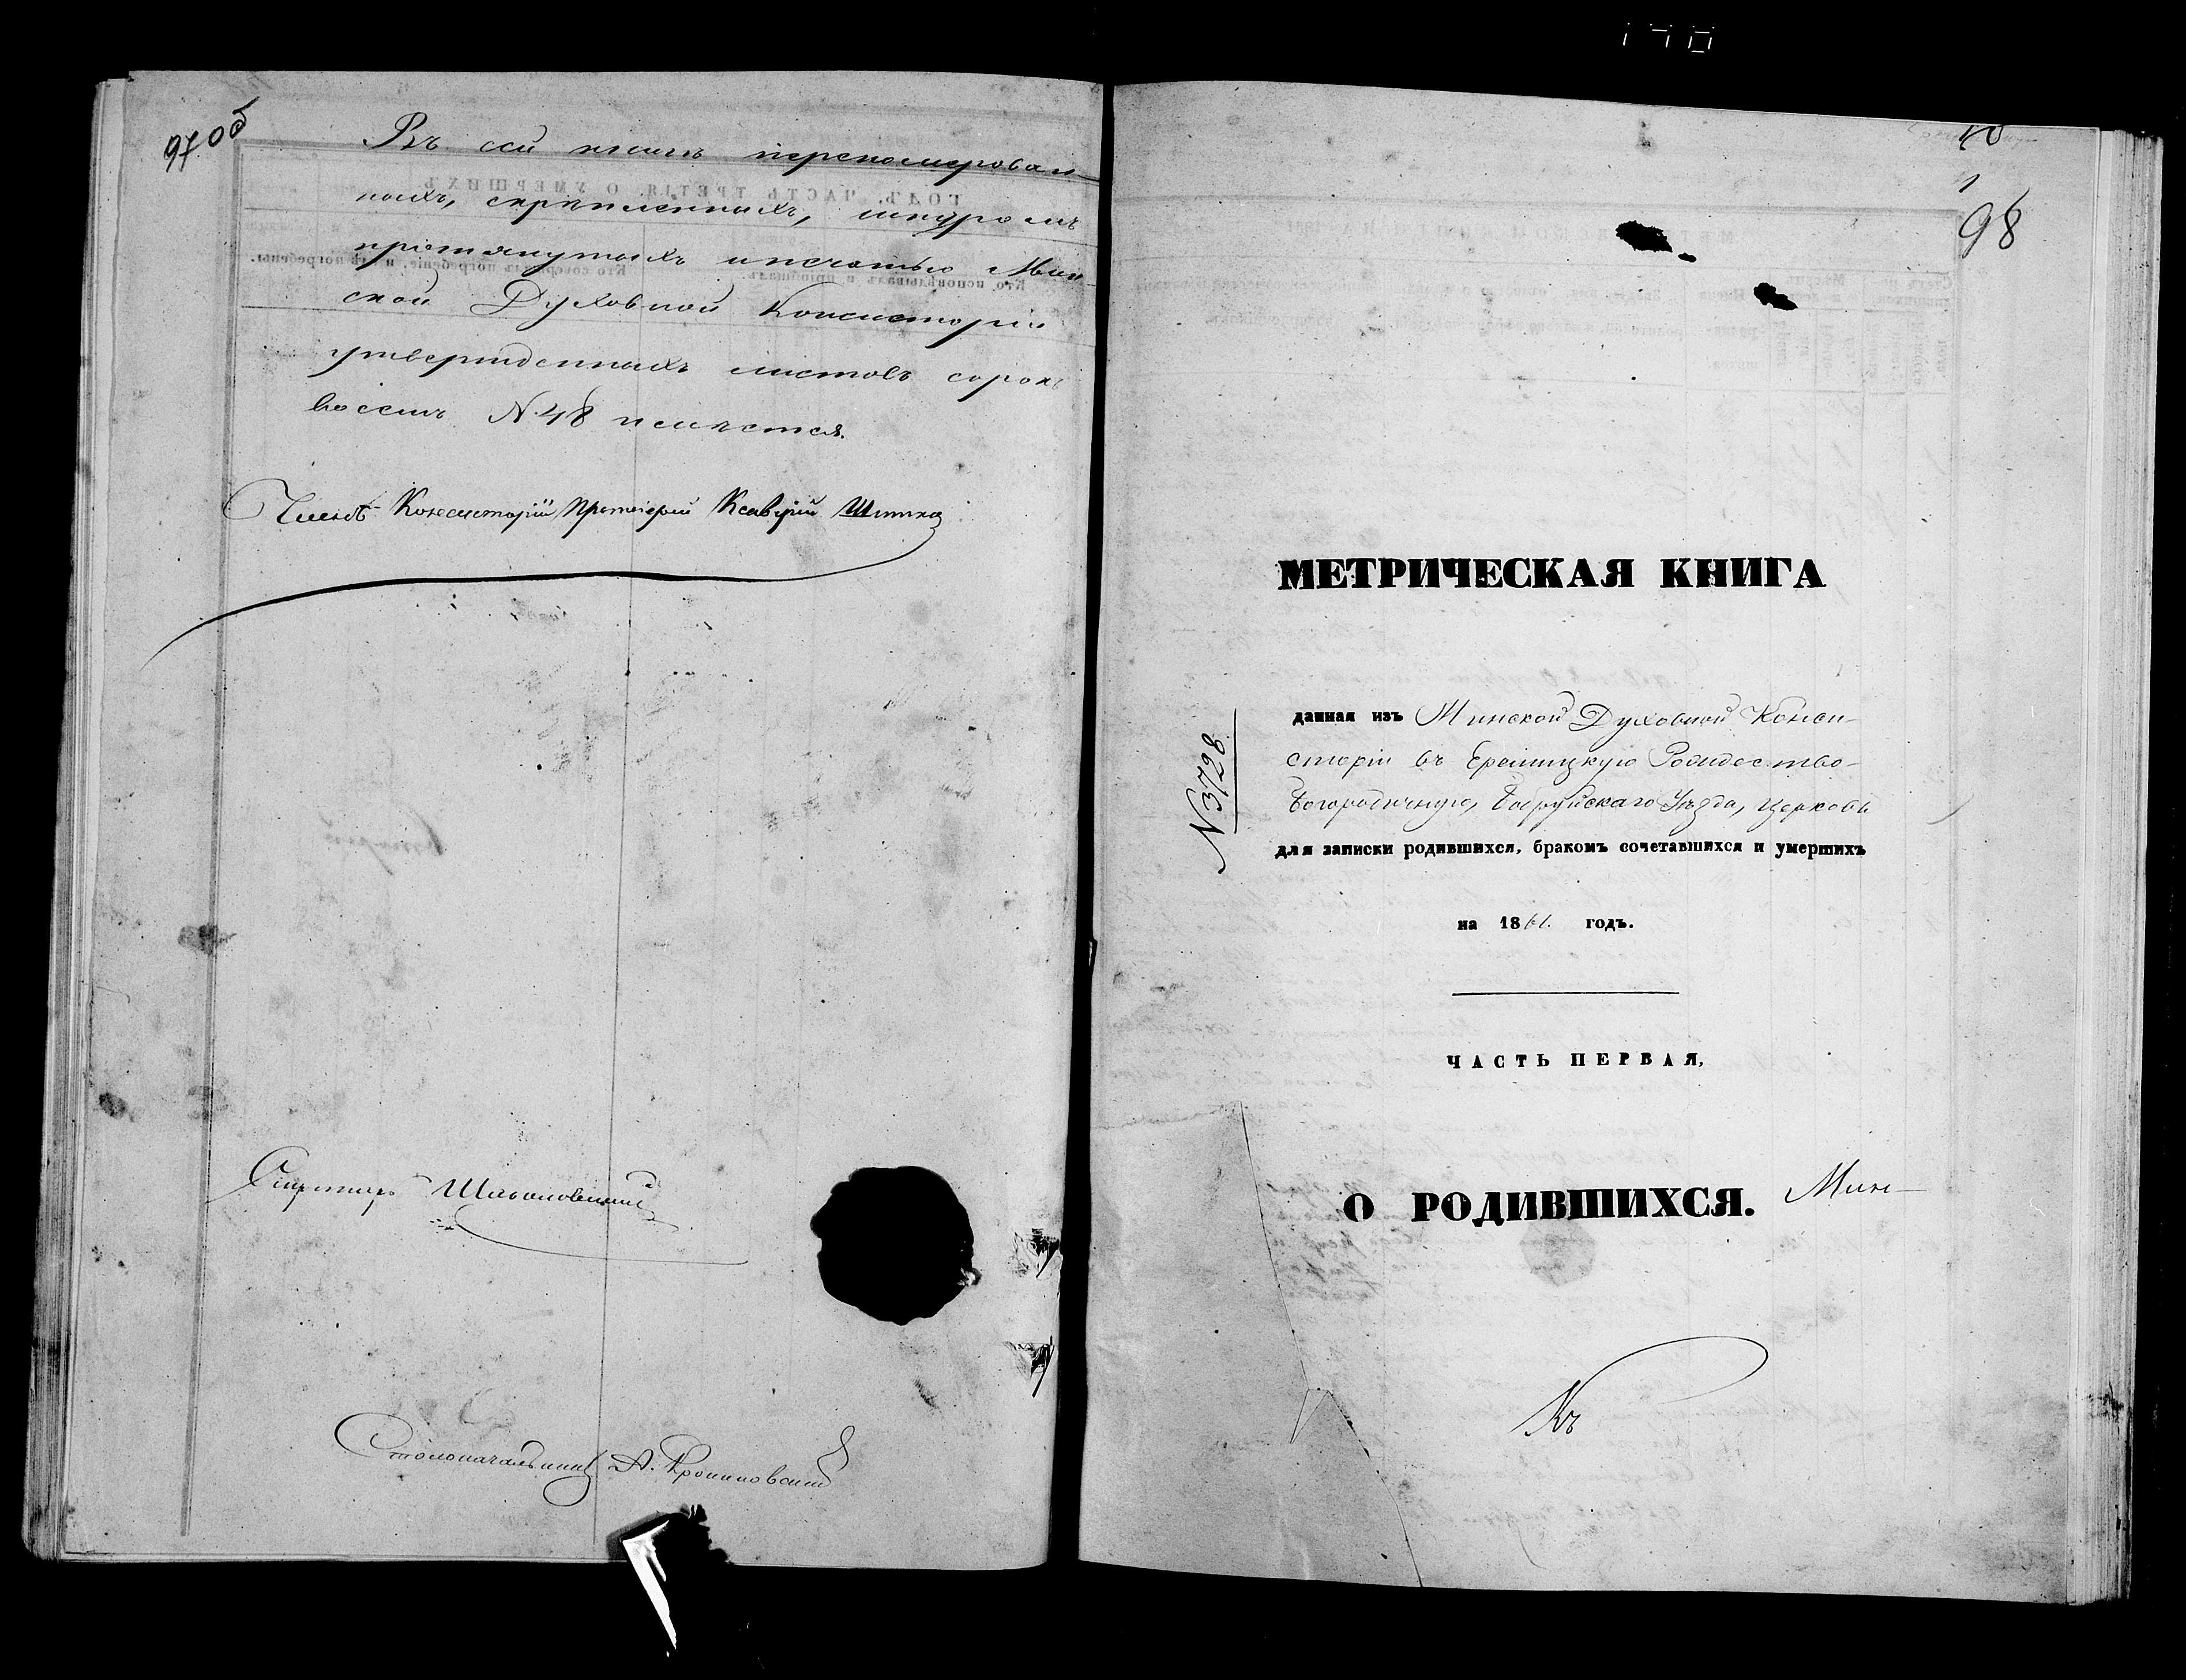 97 об
Въ сей книгѣ перенумерован
ныхъ, скрѣпленныхъ, шнуромъ
протянутыхъ и печатью Мин
ской Духовной Консисторіи
утвержденныхъ листовъ сорокъ
восемь N. 48 имѣется.
Членъ Консисторіи Протоіерей Ксаверій
Секретарь
Столоначальникъ А.
190
1
98
МЕТРИЧЕСКАЯ КНИГА
N 3728.
данная изъ Минской Духовной Конси-
сторіи въ Еремицкую Рождество-
Богородичную, Бобруйскаго Уѣзда, церковь
для записки родившихся, бракомъ сочетавшихся и умершихъ
на 1861. годъ.
ЧАСТЬ ПЕРВАЯ,
О РОДИВШИХСЯ.
Мин-
Къ